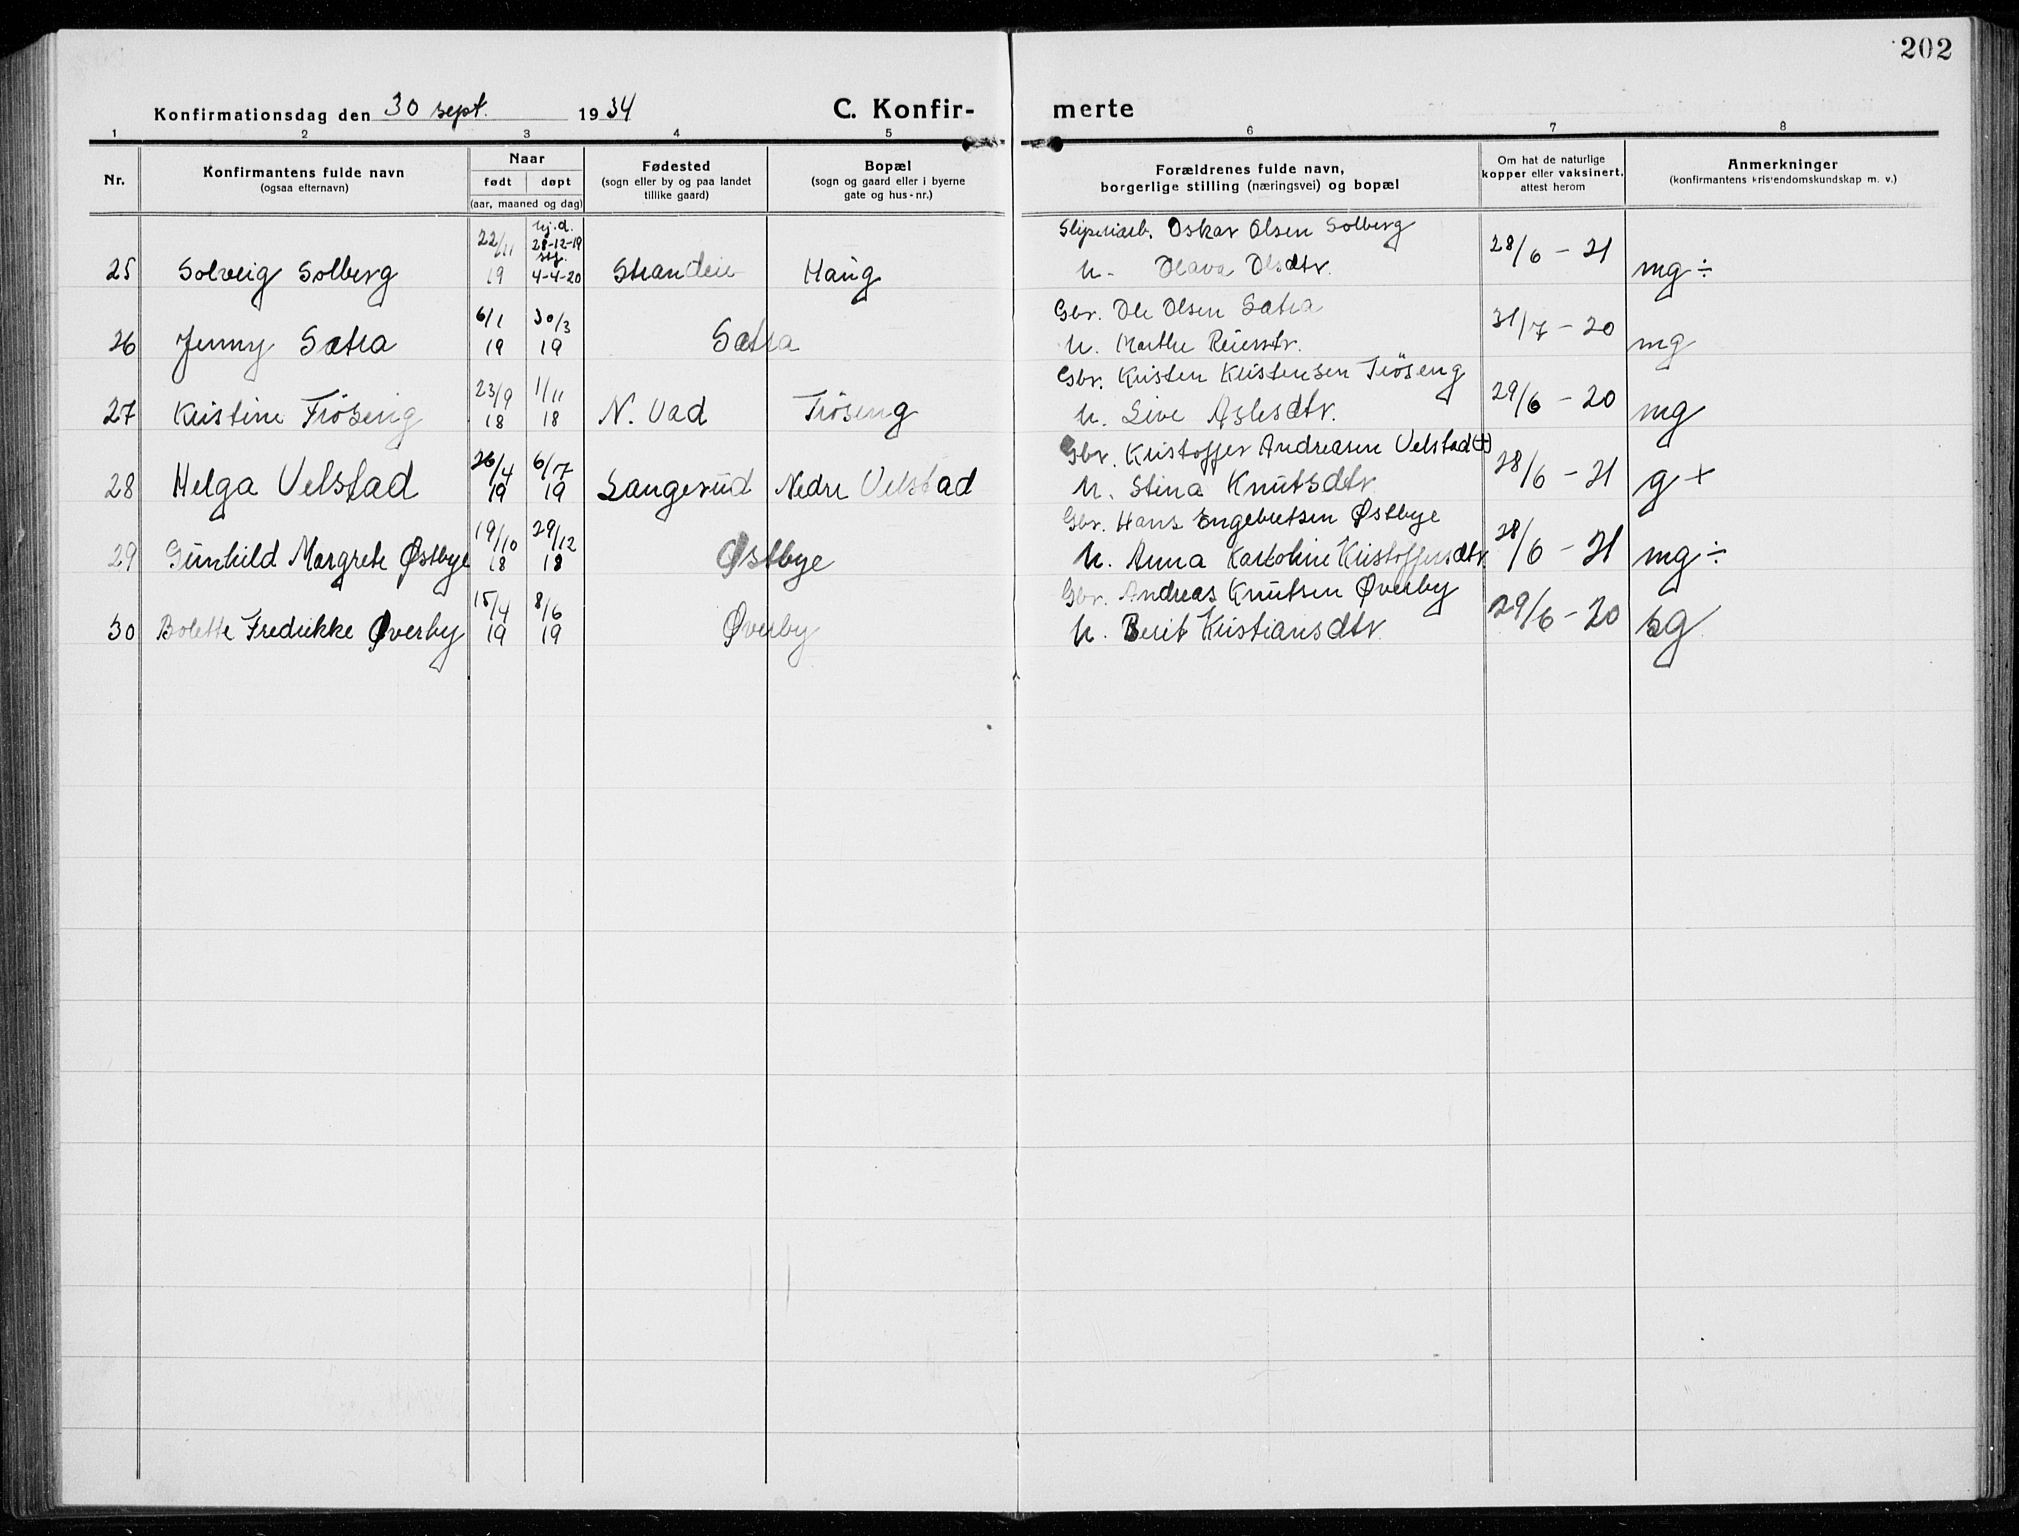 202
Konfirmationsdag den 30 sept. 1934 C. Konfir- merte
1 2 3 4 5 6 7 8
Nr. Konfirmantens fulde navn (ogsaa efternavn) Naar født døpt (aar, maaned og dag) Fødested (sogn eller by og paa landet tillike gaard) Bopæl (sogn og gaard eller i byerne gate og hus-nr.) Forældrenes fulde navn, borgerlige stilling (næringsvei) og bopæl Om hat de naturlige kopper eller vaksinert, attest herom Anmerkninger (konfirmantens kristendomskundskap m. v.)
22/11 hj.d. 28-12-19 stf. Oskar Olsen Solberg
25 Solveig Solberg 19 4-4-20 Strandeie Haug u. Olava Olsdtr. 28/6 - 21 mg ÷
6/1 30/3 Gbr. Ole Olsen Sætra
26 Jenny Sætra 19 19 Sætra u. Marthe Reiersdtr. 31/7 - 20 mg
23/9 1/11 Gbr. Kristen Kristensen Trøseng
27 Kristine Trøseng 18 18 N. Vad Trøseng u. Live Aslesdtr. 29/6 - 20 mg
26/4 6/7 Gbr. Kristoffer Andreasen Velstad (+)
28 Helga Velstad 19 19 Langerud Nedre Velstad u. Stina Knutsdtr 28/6 - 21 g +
19/10 29/12 Gbr. Hans Engebretsen Østbye
29 Gunhild Margrete Østbye 18 18 Østbye u. Anna Karoline Kristoffersdtr. 28/6 - 21 mg ÷
15/4 8/6 Gbr. Andreas Knutsen Øverby
30 Bolette Fredrikke Øverby 19 19 Øverby u. Berit Kristiansdtr. 29/6 - 20 sg